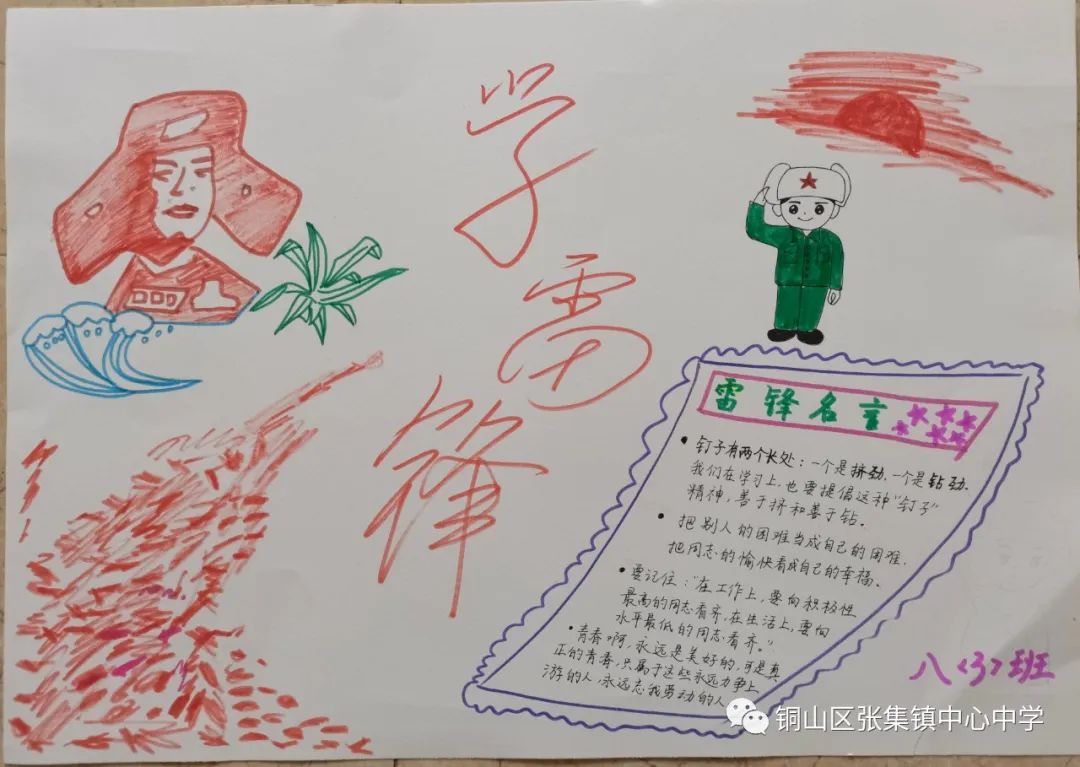 学
雷
锋
雷锋名言
• 钉子有两个长处：一个是挤劲，一个是钻劲，
我们在学习上，也要提倡这种“钉子”
精神，善于挤和善于钻。
• 把别人的困难当成自己的困难，
把同志的愉快看成自己的幸福、
• 要记住：“在工作上，要向积极性
最高的同志看齐，在生活上，要向
水平最低的同志看齐。”
• 青春啊，永远是美好的，可是真
正的青春，只属于这些永远力争上
游的人，永远忘我劳动的人
八〈3〉班
铜山区张集镇中心中学